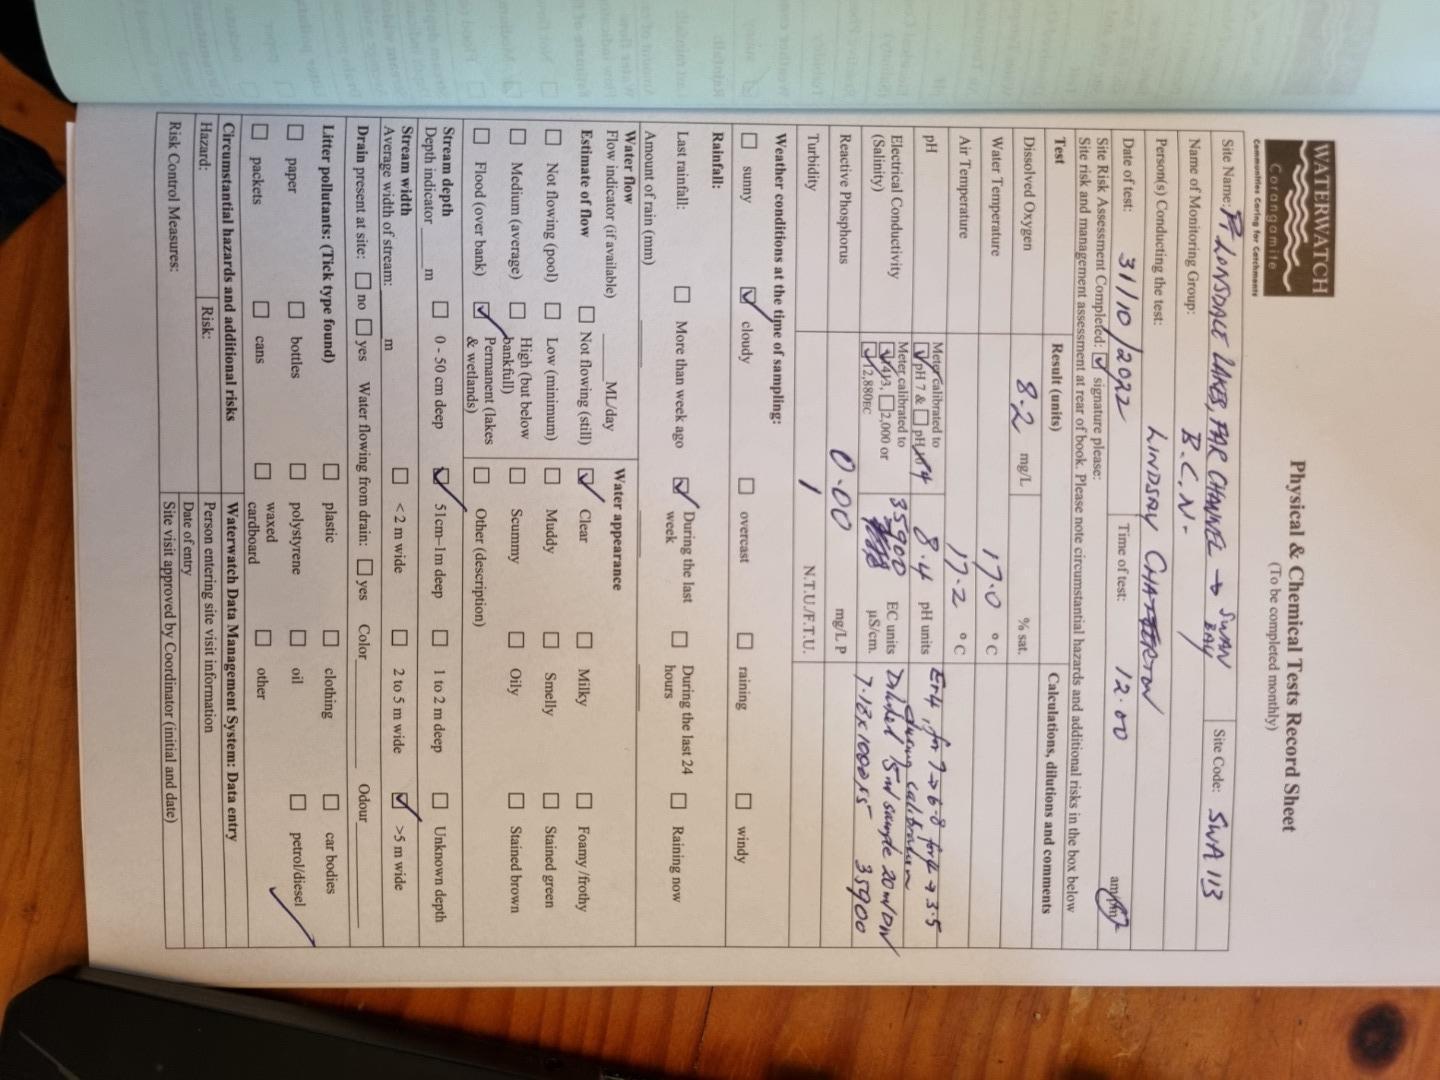 WATERWATCH
Corangamite
Communities Caring for Catchments
Physical & Chemical Tests Record Sheet
(To be completed monthly)
Site Name: Pt LONSDALE LAKES, FAR CHANNEL → SWAN BAY Site Code: SWA 113
Name of Monitoring Group: B.C.N.
Person(s) Conducting the test: LINDSAY CHATTERTON
Date of test: 31/10/2022 Time of test: 12.00 am/pm
Site Risk Assessment Completed: signature please:
Site risk and management assessment at rear of book. Please note circumstantial hazards and additional risks in the box below
Test Result (units) Calculations, dilutions and comments
Dissolved Oxygen 8.2 mg/L % sat.
Water Temperature 17.0 °C
Air Temperature 17.2 °C
pH Meter calibrated to pH 7 & pH 4 8.4 pH units for 7 → 6.8 for 4 → 3.5 during calibration
Electrical Conductivity (Salinity) Meter calibrated to 413, 2,000 or 12,880EC 35900 EC units µS/cm. Diluted 15ml sample 20ml DW
7.18x1000x5 35900
Reactive Phosphorus 0.00 mg/L P
Turbidity 1 N.T.U./F.T.U.
Weather conditions at the time of sampling:
sunny cloudy overcast raining windy
Rainfall:
Last rainfall: More than week ago During the last week During the last 24 hours Raining now
Amount of rain (mm)
Water flow Water appearance
Flow indicator (if available) ML/day
Estimate of flow Not flowing (still) Clear Milky Foamy /frothy
Not flowing (pool) Low (minimum) Muddy Smelly Stained green
Medium (average) High (but below bankfull) Scummy Oily Stained brown
Flood (over bank) Permanent (lakes & wetlands) Other (description)
Stream depth
Depth indicator m 0 - 50 cm deep 51cm–1m deep 1 to 2 m deep Unknown depth
Stream width
Average width of stream: m < 2 m wide 2 to 5 m wide >5 m wide
Drain present at site: no yes Water flowing from drain: yes Color Odour
Litter pollutants: (Tick type found) plastic clothing car bodies
paper bottles polystyrene oil petrol/diesel
packets cans waxed cardboard other
Circumstantial hazards and additional risks Waterwatch Data Management System: Data entry
Hazard: Risk: Person entering site visit information
Date of entry
Risk Control Measures: Site visit approved by Coordinator (initial and date)